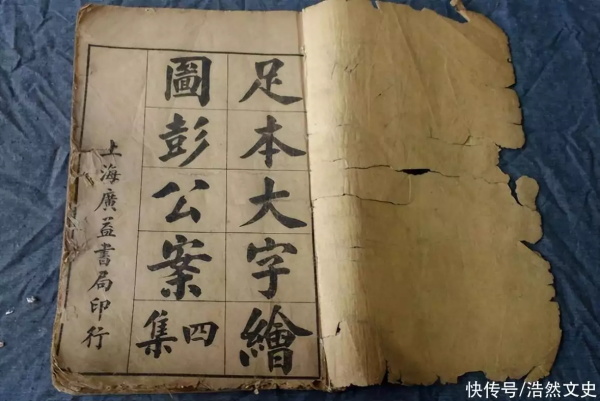 足本大字繪
圖彭公案四集
上海廣益書局印行
快传号/浩然文史